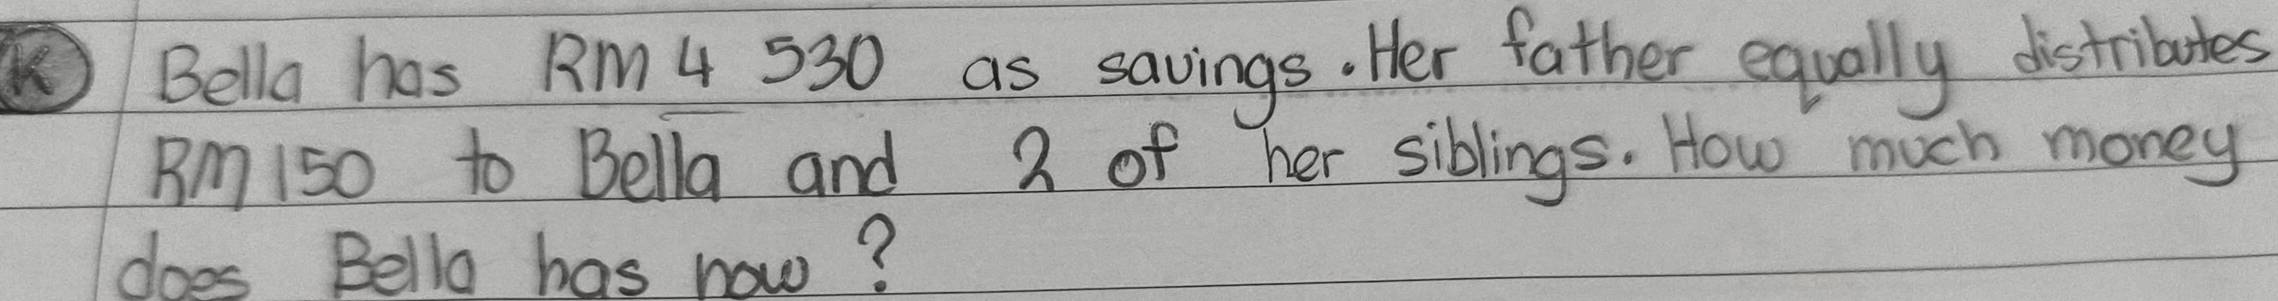 K Bella has RM 4 530 as savings. Her father equally distributes
RM 150 to Bella and 2 of her siblings. How much money
does Bella has now?